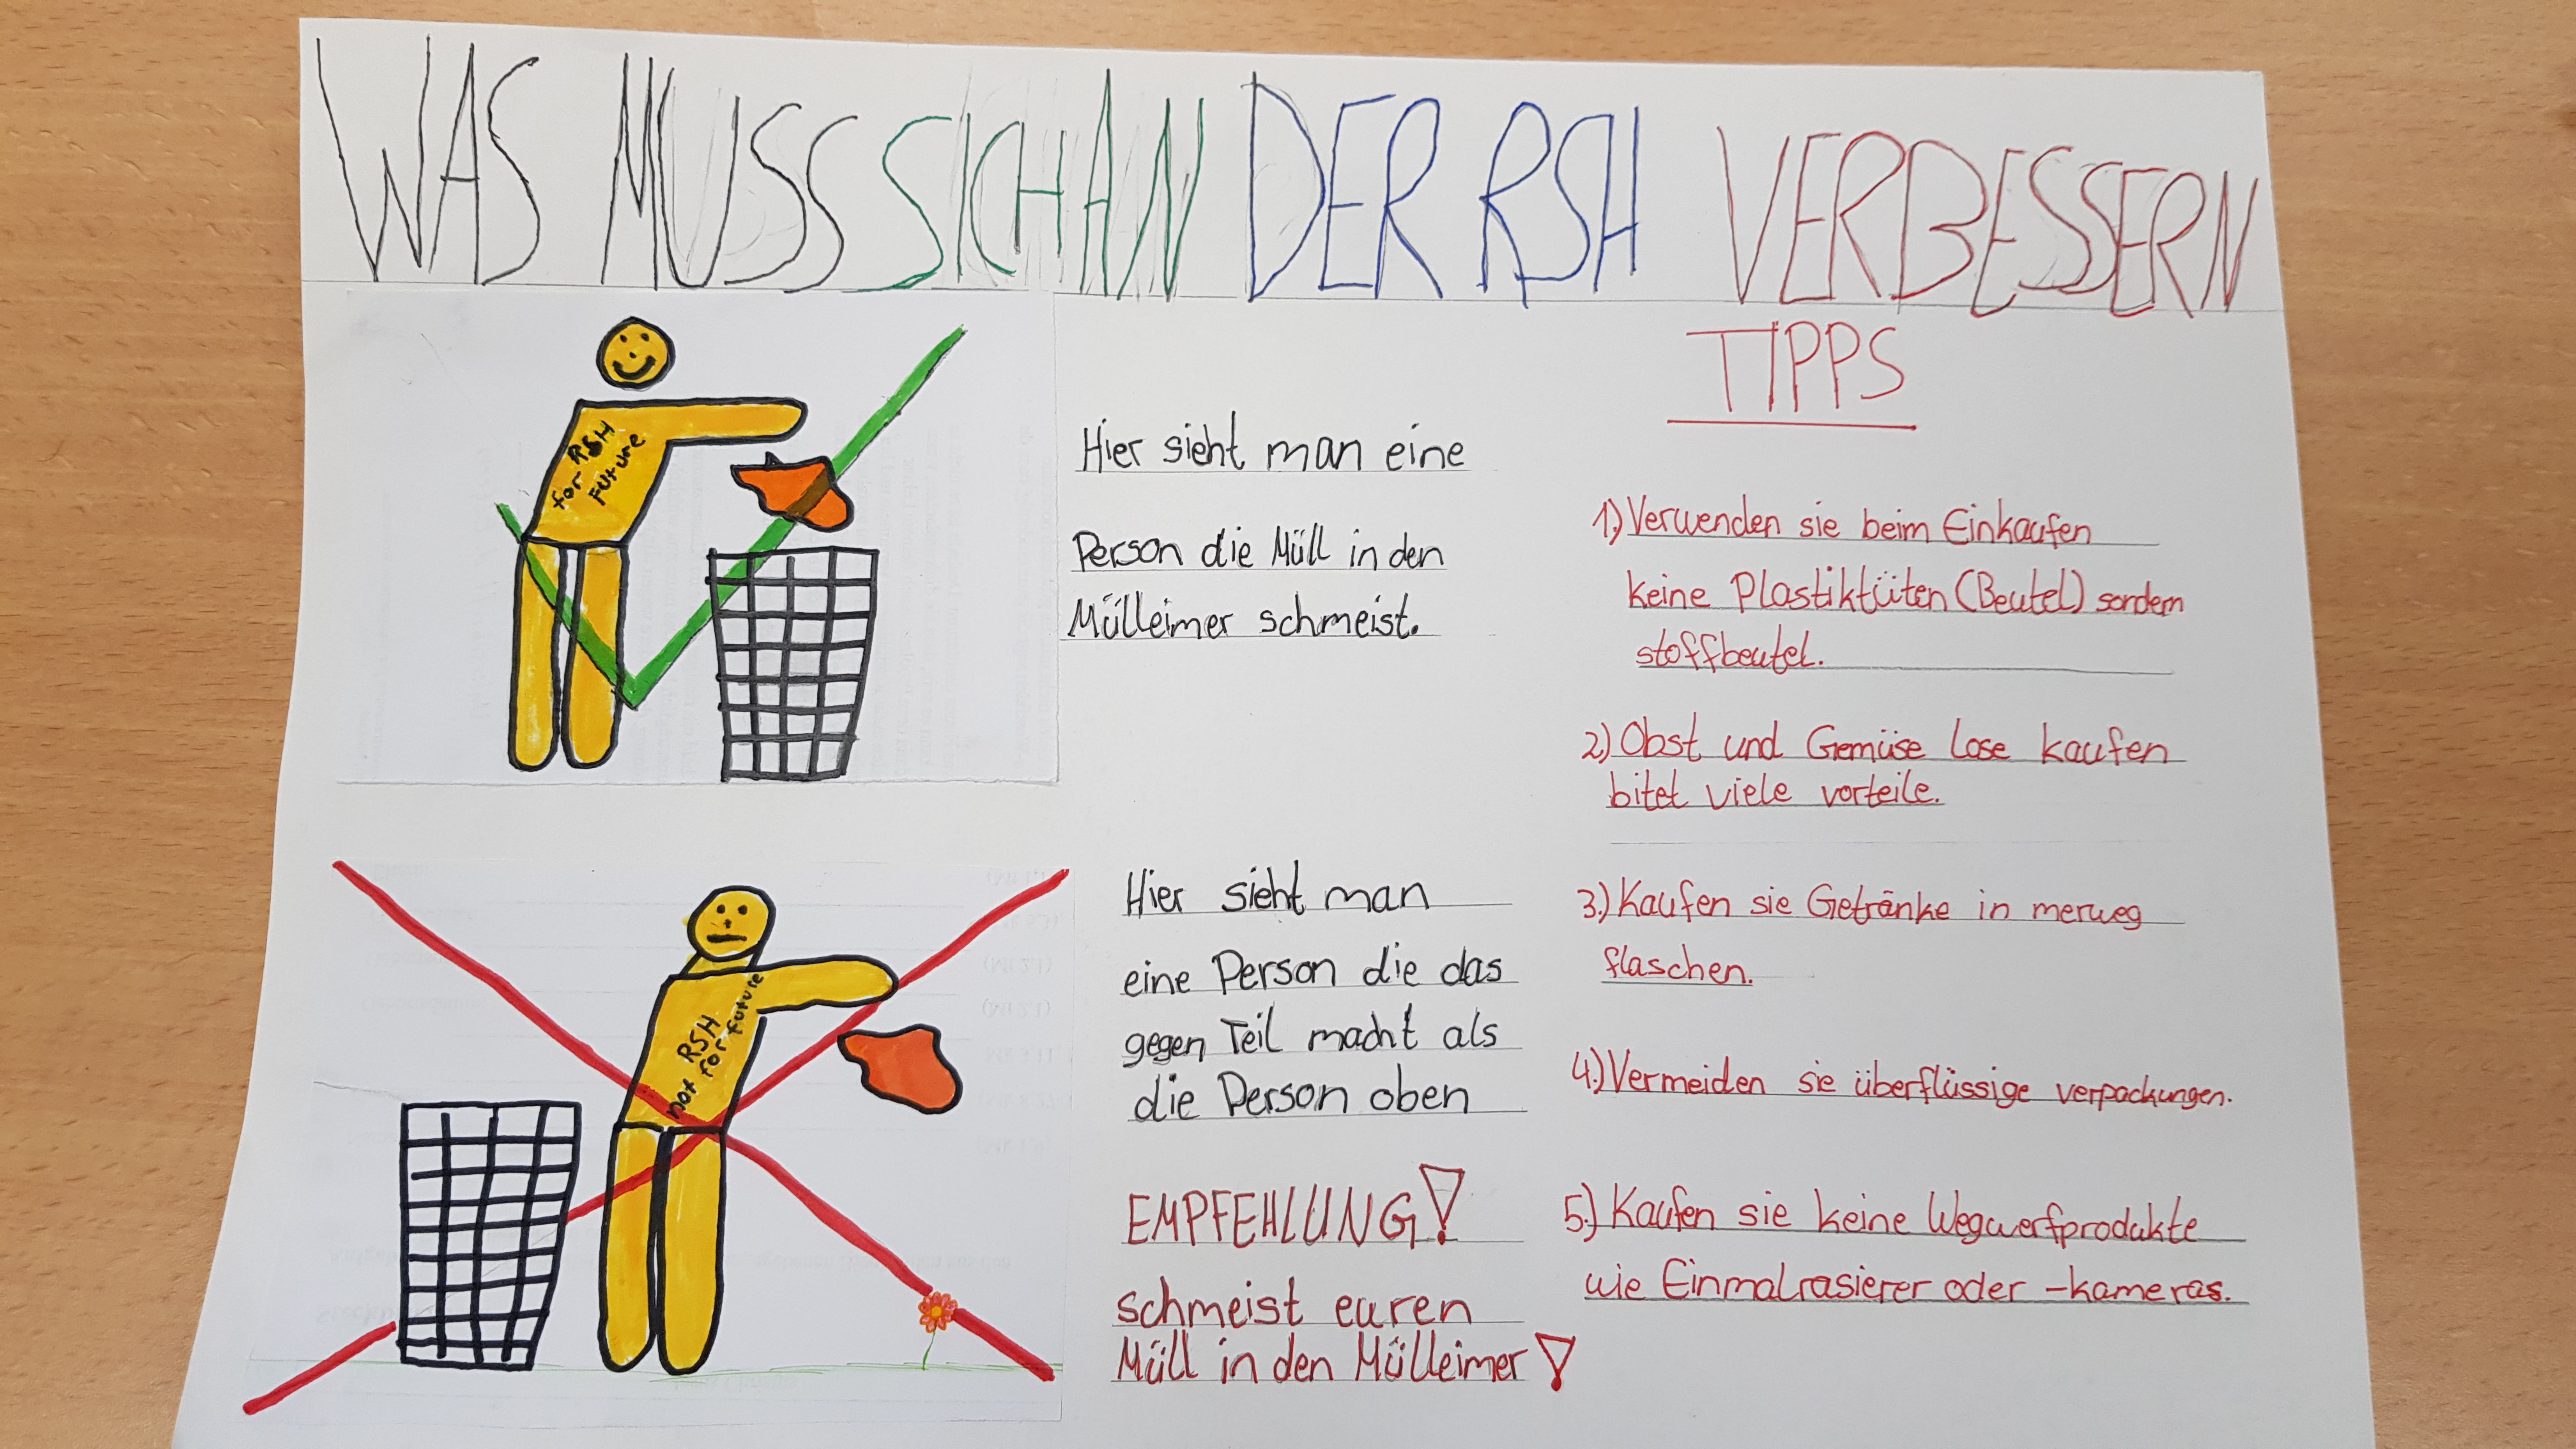 WAS MUSS SICH AN DER RSH VERBESSERN
RSH
for Future
Hier sieht man eine
Person die Müll in den
Mülleimer schmeist.
not RSH
for future
Hier sieht man
eine Person die das
gegen Teil macht als
die Person oben
EMPFEHLUNG!
schmeist euren
Müll in den Mülleimer!
TIPPS
1.) Verwenden sie beim Einkaufen
keine Plastiktüten (Beutel) sondern
stoffbeutel.
2.) Obst und Gemüse lose kaufen
bitet viele vorteile.
3.) Kaufen sie Getränke in merweg
flaschen.
4.) Vermeiden sie überflüssige verpackungen.
5.) Kaufen sie keine Wegwerfprodukte
wie Einmalrasierer oder -kameras.